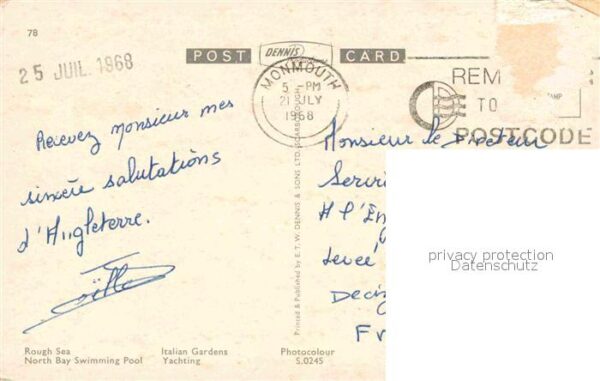 78
25 JUIL. 1968
POST CARD
DENNIS
MONMOUTH
5 - PM
21 JLY
1968
REM
TO
POSTCODE
Recevez Monsieur mes
sincère salutations
d'Angleterre.
Monsieur le
A l'En
Deciz
Fr
privacy protection
Datenschutz
Printed & Published by E. T. W. DENNIS & SONS LTD., SCARBOROUGH.
Rough Sea Italian Gardens Photocolour
North Bay Swimming Pool Yachting S.0245